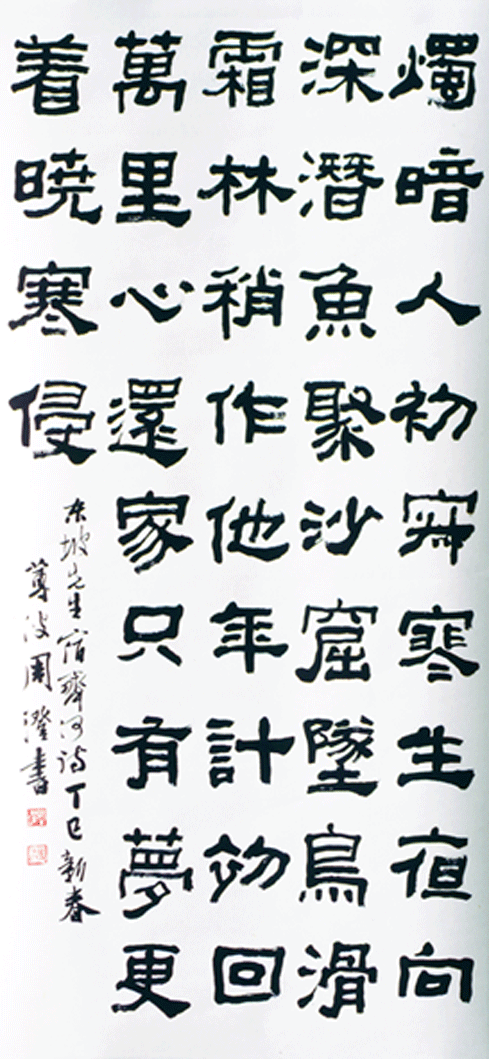 燭暗人初寂寒生夜向
深潛魚聚沙窟墜鳥滑
霜林稍作他年計効回
萬里心還家只有夢更
着曉寒侵
东坡先生宿齊河诗丁巳新春
蓴波周澄書